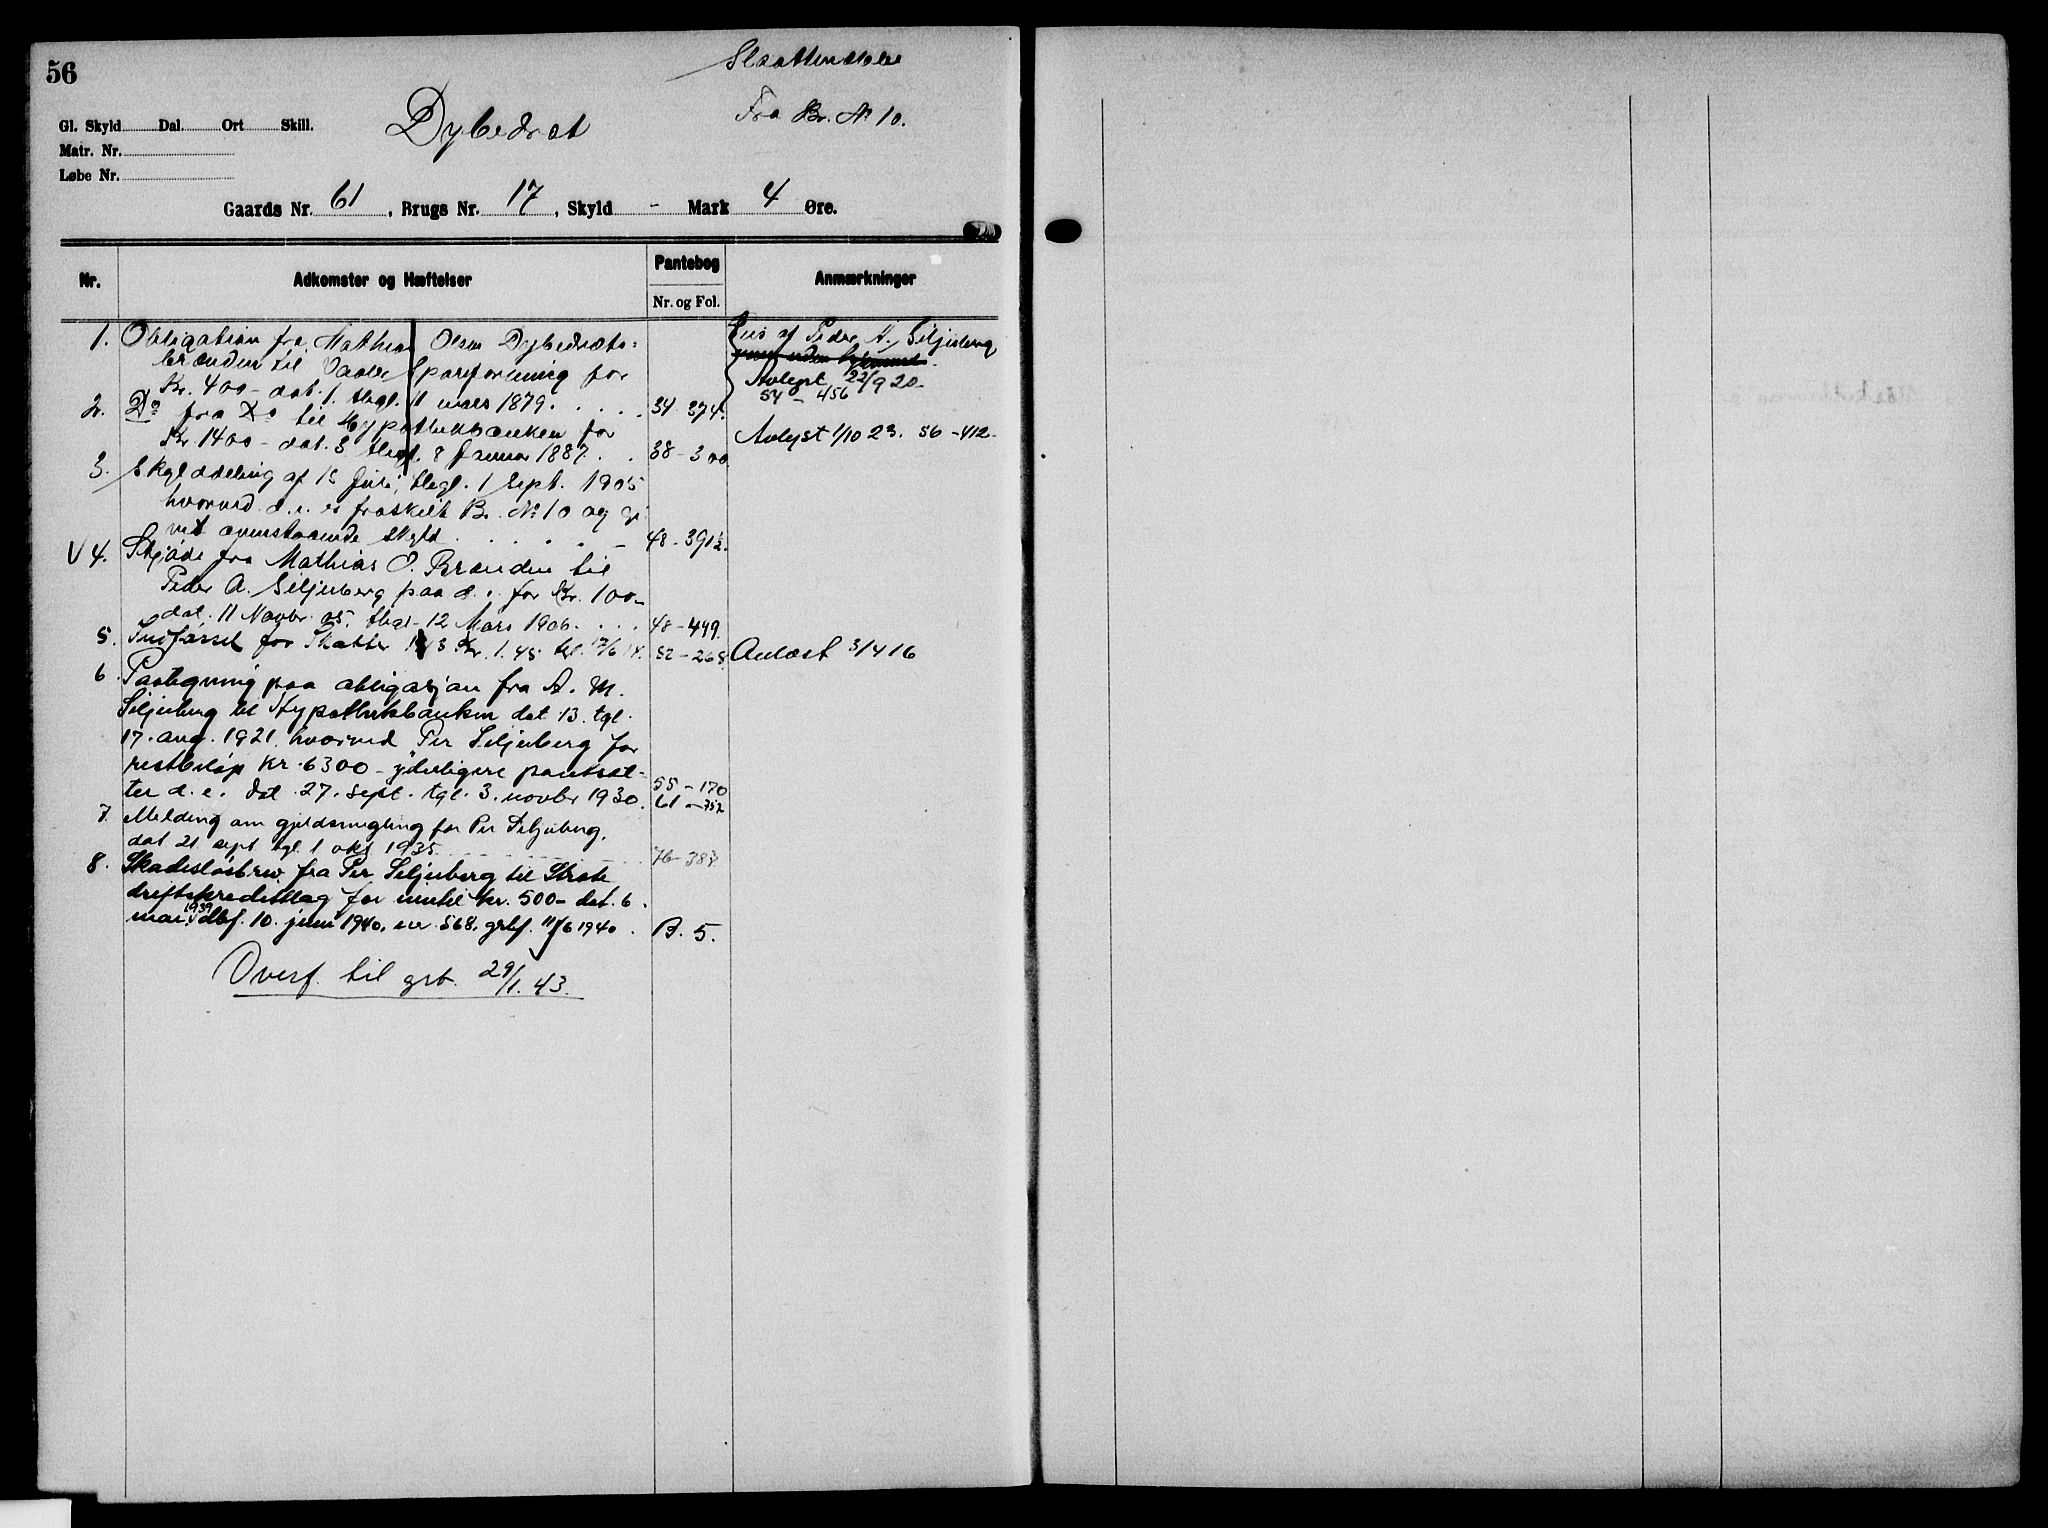 56
Fra Br. № 10.
Gl. Skyld Dal. Ort Skill.
Dybedræt
Matr. Nr.
Løbe Nr.
Gaards Nr. 61, Brugs Nr. 17, Skyld - Mark 4 Øre.
Nr. Adkomster og Hæftelser Pantebog Anmærkninger
Nr. og Fol.
1. Obligation fra Mathias Olsen Dybedræts- Eies af Peder A. Siljuberg
brænden til Vaaler Spareforening for
Kr. 400 - dat. 1. thgl. 11 mars 1879. 34-374. Avlyst 22/9 20- 54-456
2. Do fra Do til Hypothekbanken for
Kr. 1400 - dat. 3 thgl. 8 Januar 1887. 38-300 Avlyst 1/10 23. 56-412-
3. Skylddeling af 15 Juli, thgl. 1 Sept. 1905
hvorved d. e. er fraskilt Br. № 10 og gi-
vet ovenstaaende skyld 48-391½.
V 4. Skjøde fra Mathias O. Brænden til
Peder A. Siljuberg paa d. e. for Kr. 100-
dat. 11 Novbr. 05. thgl. 12 Mars 1906. 48-449.
5. Utpantning for Skatter 1913 Kr. 1.45 52-268. Avlæst 3/4 16
6. Paategning paa obligasjon fra A. M.
Siljuberg til Hypothekbanken dat. 13. tgl.
17. aug. 1921, hvorved Per Siljuberg for
restbeløp kr. 6300 - yderligere pantsæt-
ter d. e. Dat. 27. sept. tgl. 3. novbr 1930. 55-170 61-752
7. Melding om gjeldsmegling for Per Siljuberg,
dat 21 sept tgl. 1 okt 1935 76-387
8. Skadesløsbrev fra Per Siljuberg til Strate
driftskredittlag for inntil kr. 500- dat. 6.
mai 1939 dbf. 10. juni 1940, nr. 568, grbf. 11/6 1940. B. 5.
Overf. til grb. 29/1. 43.